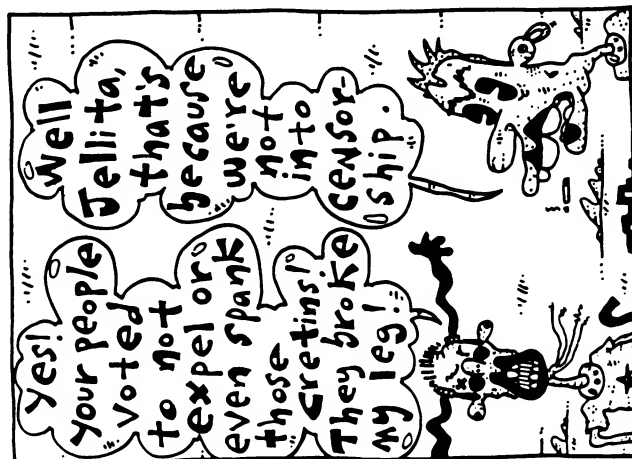 Yes!
Your people
voted
to not
expel or
even spank
those
cretins!
They broke
my leg!
Well
Jellita,
that's
because
we're
not
into
censor-
ship.